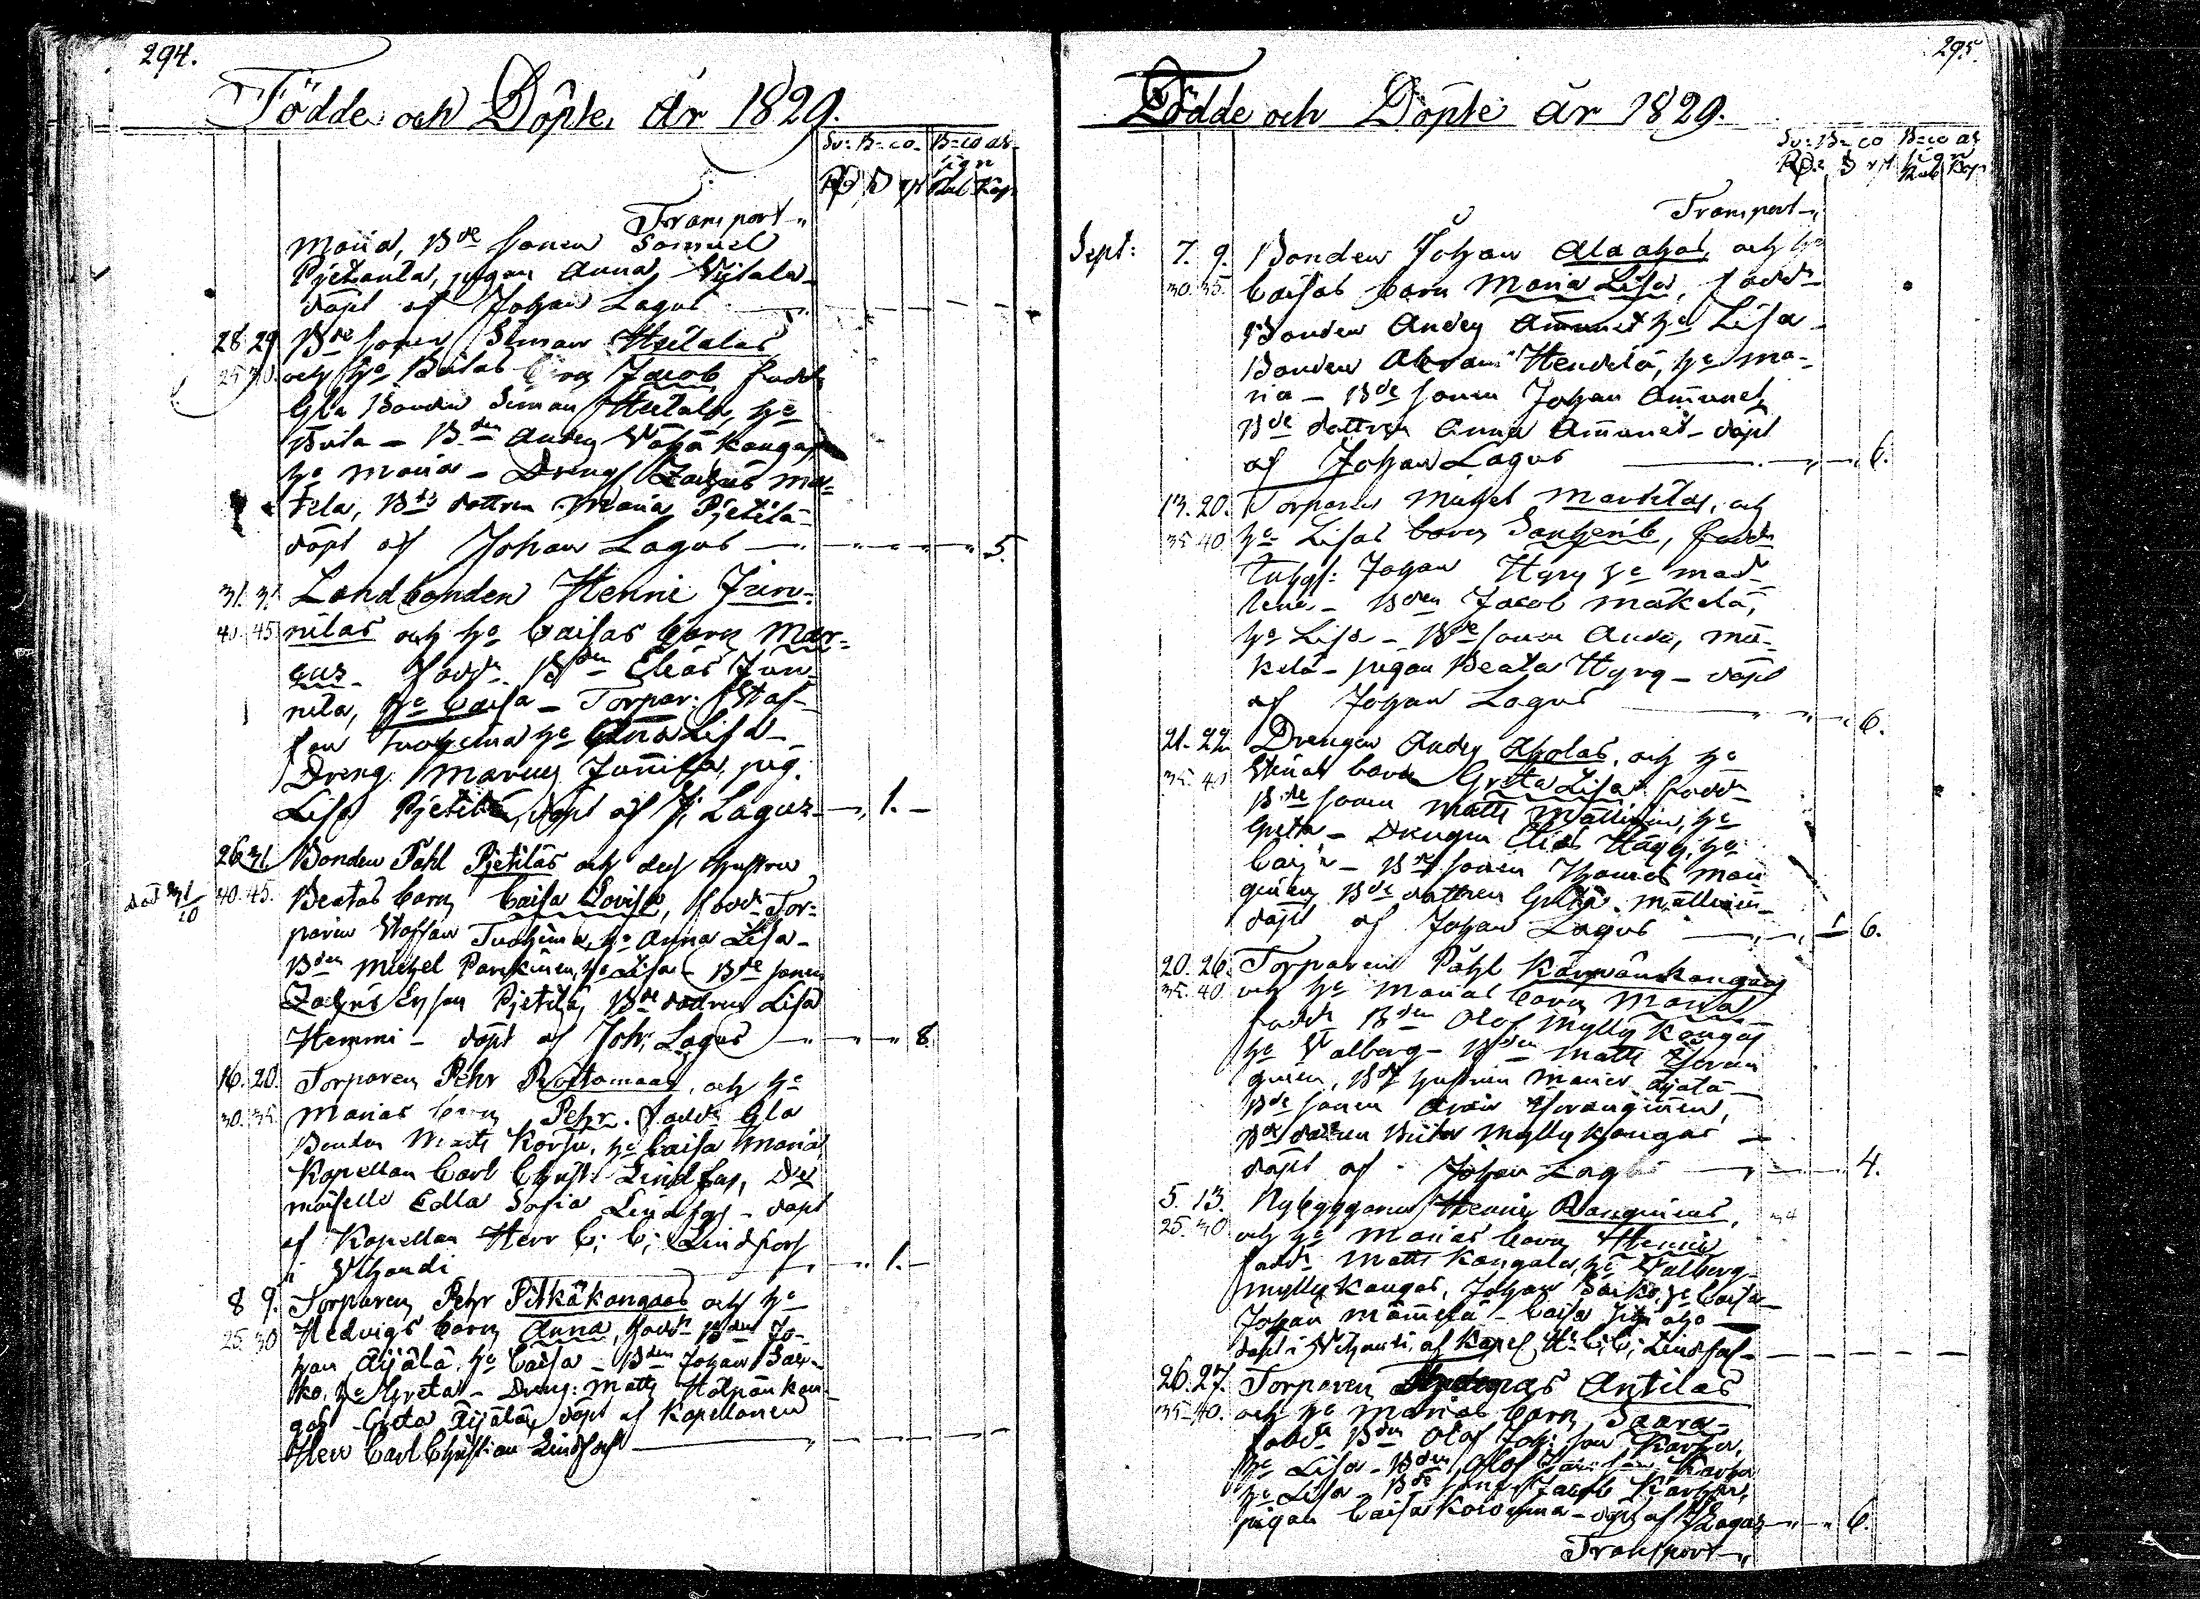 294.
Födde och Döpte år 1829.
Sv: B=co. B=co as-
sign
Rd ß rst Rub Kop
Transport "
Maria, Bde sonen Samuel
Pjetanla, pigan Anna
döpt af Johan Lagus
28 29 Bde sonen Simon Hietalas
25 30. och ho Britas barn Jacob, fadd:
Gla Bonden Simon Hietala, ho
Brita - B:den Anders Vähä Kangas
ho Maria - Dreng Zachris Mar-
tela, Bds dottren Maria Pjetilä -
döpt af Johan Lagus 5.
31. 31. Landbonden Henric Jun-
40. 45 nilas och ho Caisas barn Mar-
cus. fadd: Bden Elias Jun-
nila, ho Caisa - Torpar: Staf-
fan Tuohima ho Anna Lisa -
Dreng: Marcus Junnila, pig.
Lisa Pjetilä, döpt af J: Lagus 1.
26 31 Bonden Påhl Pjetiläs och dess hustru
död 31/10 40. 45. Beatas barn Caisa Lovisa, fadd: Tor-
paren Staffan Tuohima, ho Anna Lisa -
Bden Michel Parckinen, ho Lisa - Bde sonen
Zachris Ersson Pjetilä, Bde dottren Lisa
Hemmi - döpt af Joh: Lagus 8.
16. 20. Torparen Pehr Rostamaas, och ho
30. 35. Marias barn Pehr. fadd: Gla
Bonden Matts Korsu, ho Caisa Maria
Kapellan Carl Christ: Lindfors, De-
moiselle Edla Sofia Lindfors - döpt
af Kapellan Herr C: C: Lindfors
i Vihandi 1.
8 9. Torparen Pehr Pitkäkangaas och ho
25. 30 Hedvigs barn Anna, fadd: Bden Jo-
han Äijälä, ho Caisa - Bden Johan Sar-
ko, ho Greta - Dreng: Matts Hölpän kan-
gas - Greta Äijälä, döpt af Kapellanen
Herr Carl Christian Lindfors
295.
Födde och Döpte år 1829.
Sv: B=co B=co as
sign
Rd: ß rst Rub Kop
Transport "
Sept: 7. 9. Bonden Johan Alaahos, och ho
30. 35. Caisas barn Maria Lisa, fadd:
Bonden Anders Ammunet ho Lisa -
Bonden Abram Hendelä, ho Ma-
ria - Bde sonen Johan Ammunet
Bde dottren Anna Ammunet - döpt
af Johan Lagus 6.
13. 20. Torparen Michel Marttilas, och
35 40 ho Lisas barn Sanherib, fadd:
Johan Hyry ho Mad-
lena - Bden Jacob Mäkelä,
ho Lisa - Bde sonen Anders Mä-
kelä - pigan Beata Hyry - döpt
af Johan Lagus 6.
21. 22. Drengen Anders Aholas, och ho
35. 40 Stinas barn Greta Lisa fadd:
Bde sonen Matts Mattinen, ho
Greta - Drengen Elias Hägg, ho
Carin - Bde sonen Thomas Man-
guinen, Bde dottren Greta Mattinen -
döpt af Johan Lagus 1 6.
20. 26. Torparen Påhl Kärpänkangas
35. 40 och ho Marias barn Maria
fadd: Bden Olof Mylly Kangas
ho Valberg - Bden Matts Horan
guinen, Bds hustrun Maria Äjälä
Bde sonen Horanguinen,
Bde dottren Brita Mylly Kangas
döpt af Johan Lagus 4.
5. 13. Nybyggaren Henric Ranguinens,
25. 30 och ho Marias barn Henric
fadd: Matts Kangala, ho Valberg
Mylly Kangas, Johan Sarko, ho Caisa -
Johan Mämmelä - Caisa
döpt i Vihandi, af Kapel: Hr C: C: Lindfors
26. 27. Torparen Andreas Antilas
35 40. och ho Marias barn Saara -
fadd: Bden Olof Joh: son Karhu,
ho Lisa - Bden Olof Karhu
ho Lisa - Bde sonen Jacob Karhu,
pigan Caisa - döpt af J: Lagus 6.
Transport "